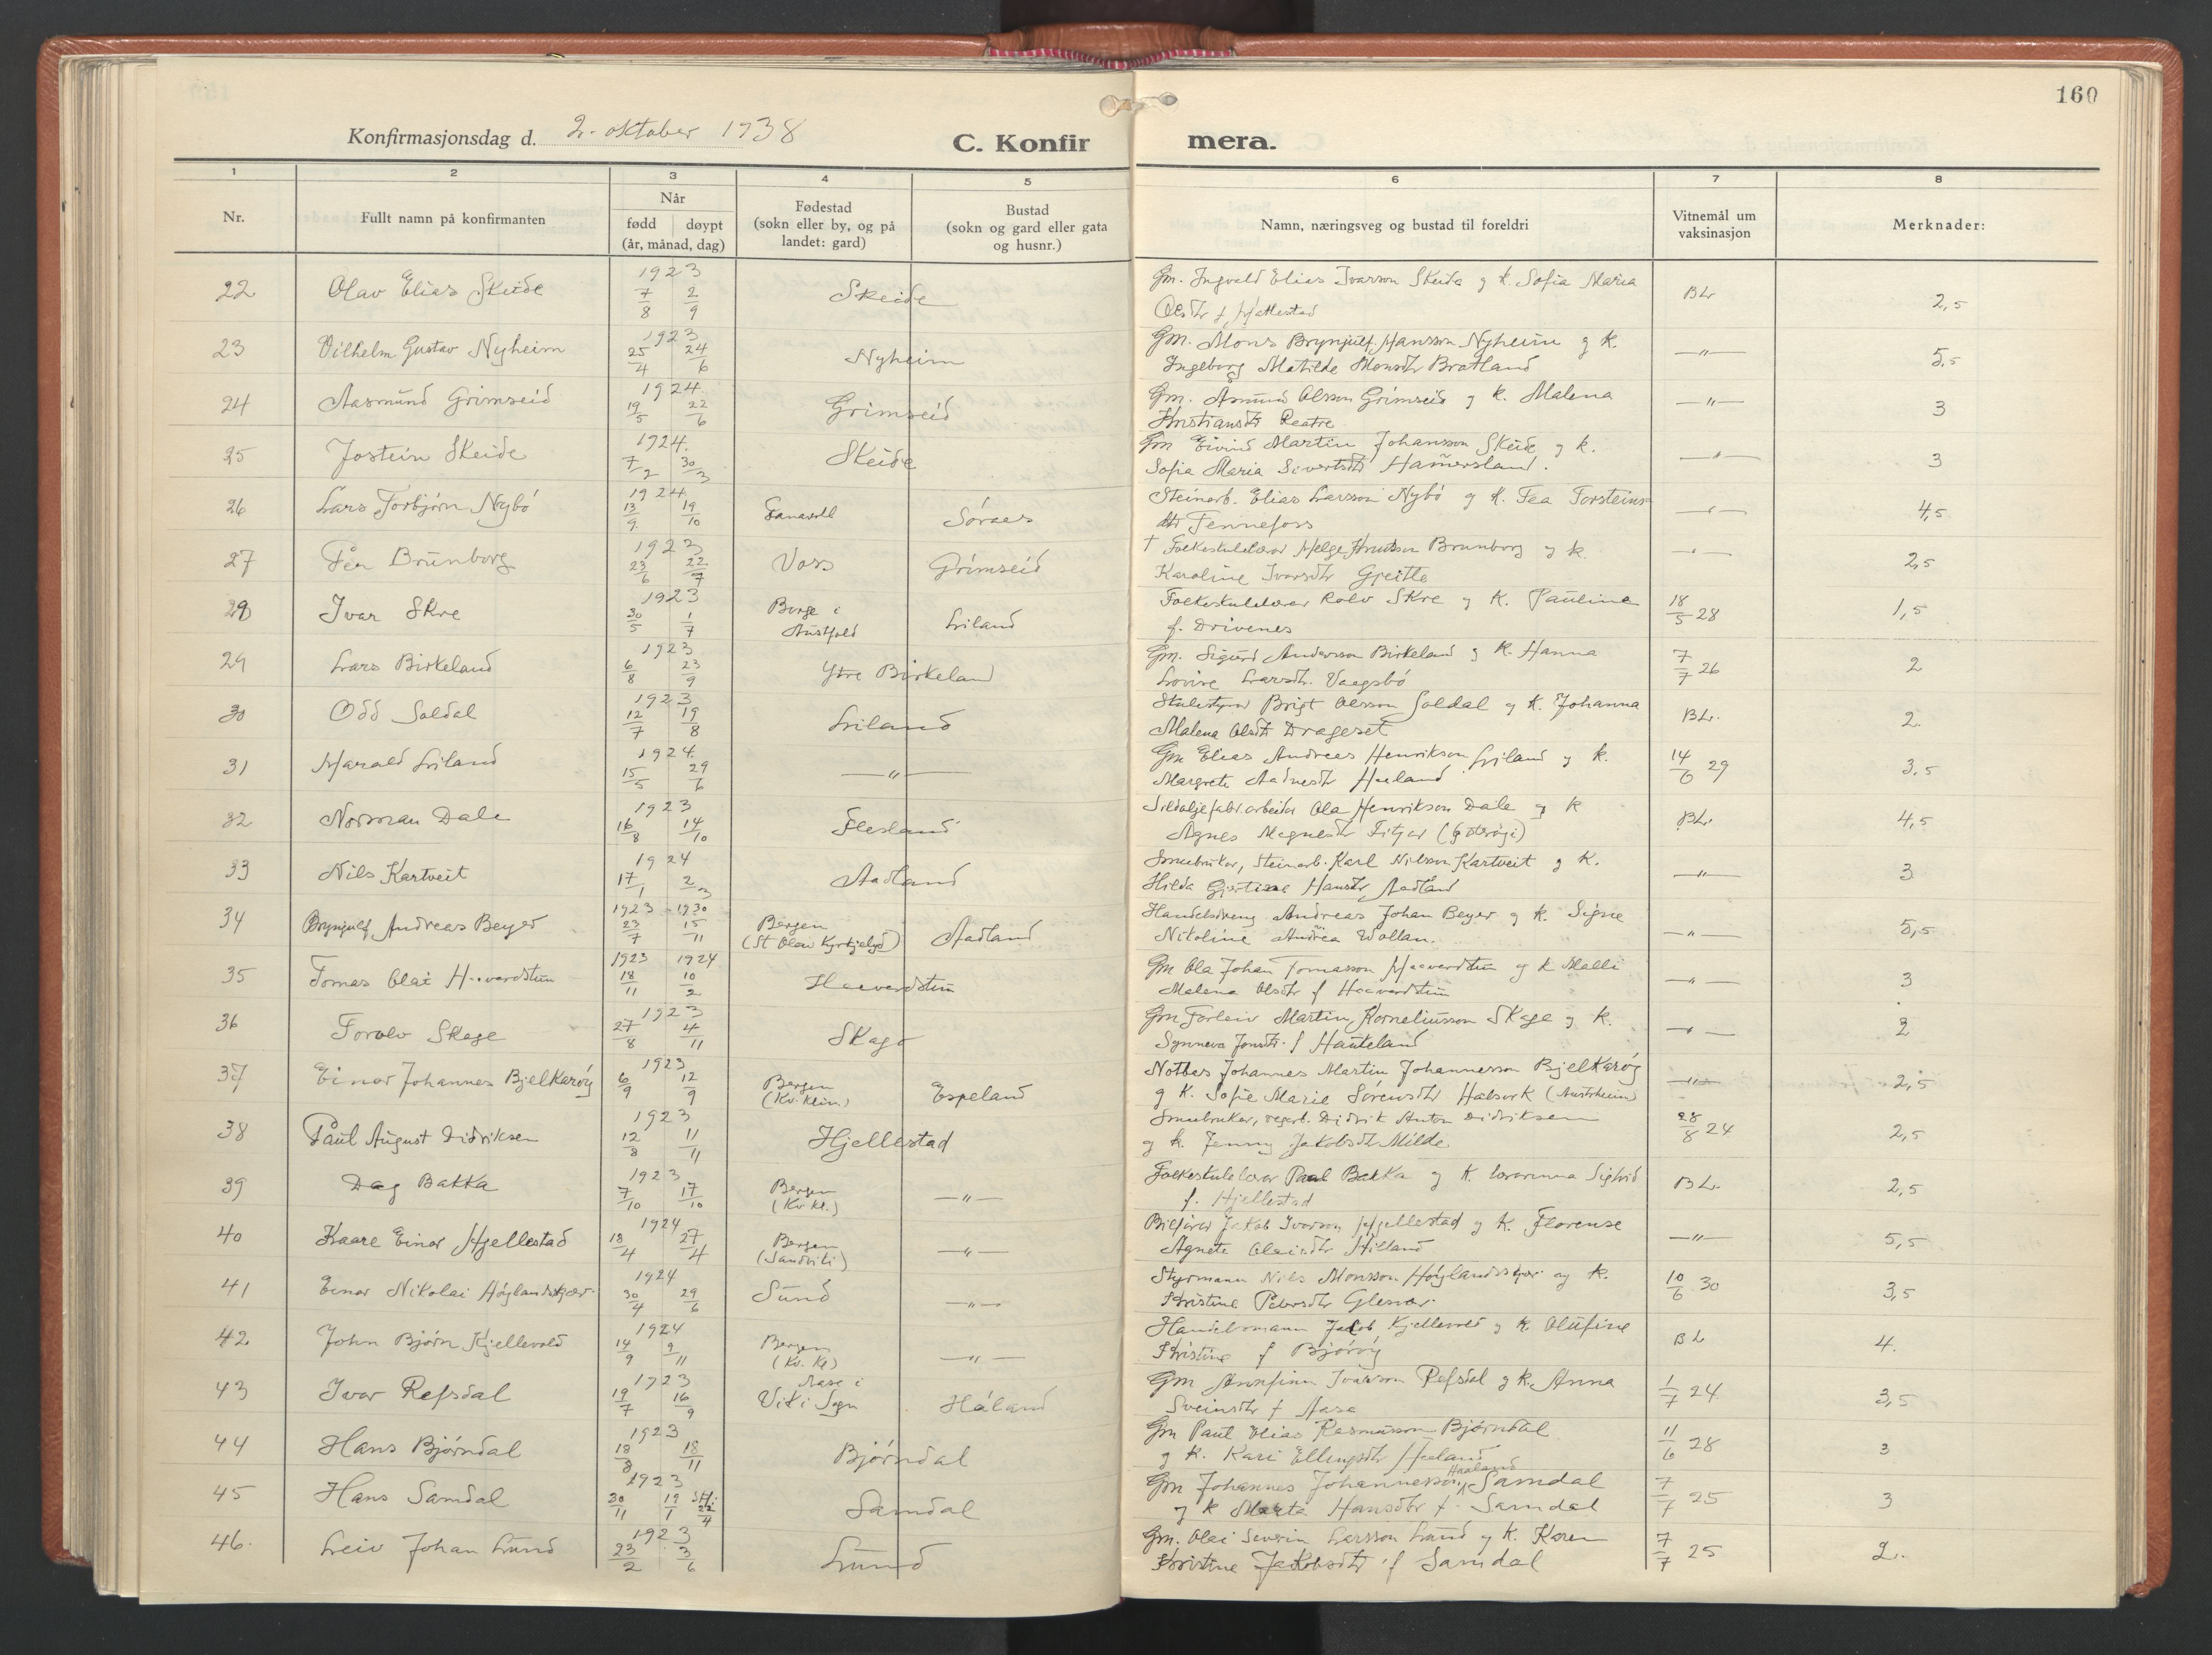 160
Konfirmasjonsdag d. 2. oktober 1938
C. Konfirmera.
1 2 3 4 5 6 7 8
Nr.
Fullt namn på konfirmanten
Når
fødd døypt
(år, månad, dag)
Fødestad
(sokn eller by, og på
landet: gard)
Bustad
(sokn og gard eller gata
og husnr.)
Namn, næringsveg og bustad til foreldri
Vitnemål um
vaksinasjon
Merknader:
22 Olav Elias Skeide 1923 7/8 2/9 Skeide Gm. Ingvald Elias Ivarson Skeide g k. Sofia Maria BL. 2,5
Olsdtr f Hatlestad
23 Vilhelm Gustav Nyheim 1923 25/4 24/6 Nyheim Gm. Mons Brynjulf Hansson Nyheim g k. —"— 5,5
Ingeborg Matilde Monsdtr Bratland
24 Aasmund Grimseid 1924 19/5 22/6 Grimseid Gm. Åsmund Olsson Grimseid g k. Malena —"— 3
Kristiansdtr
25 Jostein Skeide 1924. 7/2 30/3 Skeide Gm Eivind Martin Johansson Skeide g k. —"— 3
Sofia Maria Sivertsdtr Hamersland.
26 Lars Torbjørn Nybö 1924 13/9 19/10 Sörnes Steinarb. Elias Larsson Nybö g k. Tea Torsteins- —"— 4,5
dtr Fennefoss
27 Per Brunborg 1923 23/6 22/7 Voss Grimseid † Folkeskulelærar Helge Knutson Brunborg g k. —"— 2,5
Karoline Ivarsdtr Gjeitle
28 Ivar Skre 1923 30/5 1/7 Borge i Austfold Liland Folkeskulelærar Rolv Skre g k. Pauline 18/5 28 1,5
f. Drivenes
29 Lars Birkeland 1923 6/8 23/9 Ytre Birkeland Gm. Sigurd Andersson Birkeland g k. Hanna 7/7 26 2
Lovise Larsdtr. Vaagsbö
30 Odd Soldal 1923 12/7 19/8 Liland Skulestyrar Brigt Olsson Soldal g k. Johanna BL. 2.
Malena Olsdtr Drageset
31 Harald Liland 1924. 15/5 29/6 —"— Gm Elias Andreas Henrikson Liland g k. 14/6 29 3,5
Margrete Aadnesdtr Haaland
32 Norman Dale 1923 16/8 14/10 Flesland Sildoljefabr.arbeidar Ola Henrikson Dale g k BL. 4,5
Agnes Magnesdtr Fitjar
33 Nils Kartveit 1924 17/1 2/3 Aadland Smaabrukar, steinarb. Karl Nilsson Kartveit g k. —"— 3
Hilda Gjertine Hansdtr Aadland
34 Brynjulf Andreas Beyer 1923 1930 23/7 15/11 Bergen (St Olav Kyrkjelyd) Aadland Andreas Johan Beyer g k. Signe —"— 5,5
Nikoline Andrea Wollan.
35 Tomas Olai Haavardstun 1923 1924 18/11 10/2 Haavardstun Gm Ola Johan Tomasson Haavardstun g k Malli —"— 3
Malena Olsdtr f Haavardstun
36 Torolv Skage 1923 27/8 4/11 Skage Gm Torleiv Martin Korneliusson Skage g k. —"— 2
Synneva Jonsdtr. f Hauteland
37 Einar Johannes Bjelkaröy 1923 6/9 12/9 Bergen (Kv. klin.) Espeland Notbas Johannes Martin Johannesson Bjelkaröy —"— 2,5
g k. Sofie Marie Sörensdtr Halsvik (Austrheim)
38 Paul August Didriksen 1923 12/8 11/11 Hjellestad Smaabrukar, vegarb. Didrik Anton Didriksen 28/8 24 2,5
g k. Jenny Jakobsdtr Milde
39 Dag Bakka 1923 7/10 17/10 Bergen (Kv kl.) —"— Folkeskulelærar Paul Bakka g k. lærarinna Sigrid BL. 2,5
f. Hjellestad
40 Kaare Einar Hjellestad 1924 18/4 27/4 Bergen (Sandviki) —"— Bileigar Jakob Ivarson Hjellestad g k. Florense —"— 5,5
Agnete Olaisdtr Hilland
41 Einar Nikolai Höylandskjær 1924 30/4 29/6 Sund —"— Styrmann Nils Monsson Höylandskjær og k. 10/6 30 3,5
Kristine Petersdtr Glesvær.
42 John Bjørn Kjellevold 1924 14/9 9/11 Bergen (Kv. kl) —"— Handelsmann Jakob Kjellevold g k. Olufine BL 4.
Kristine f Björöy
43 Ivar Refsdal 1923 19/7 16/9 Aase i Vik i Sogn Håland Gm Arnfinn Ivarson Refsdal g k. Anna 1/7 24 3,5
Sveinsdtr f Aase
44 Hans Bjørndal 1923 18/8 18/11 Bjørndal Gm Paul Elias Rasmusson Bjørndal 11/6 28 3
g k. Kari Ellingsdtr Haaland
45 Hans Samdal 1923 30/11 19/1 22/4 Samdal Gm Johannes Johannesson Haaland Samdal 7/7 25 3
g k Marta Hansdtr f. Samdal
46. Leiv Johan Lund 1923 23/2 3/6 Lund Gm. Olai Severin Larsson Lund g k. Karen 7/7 25 2.
Kristine Jakobsdtr f Samdal